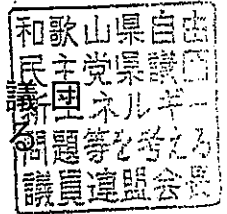 和歌山県自由
民主党県議団
議団
新エネルギー
る
問題等を考える
議員連盟会長